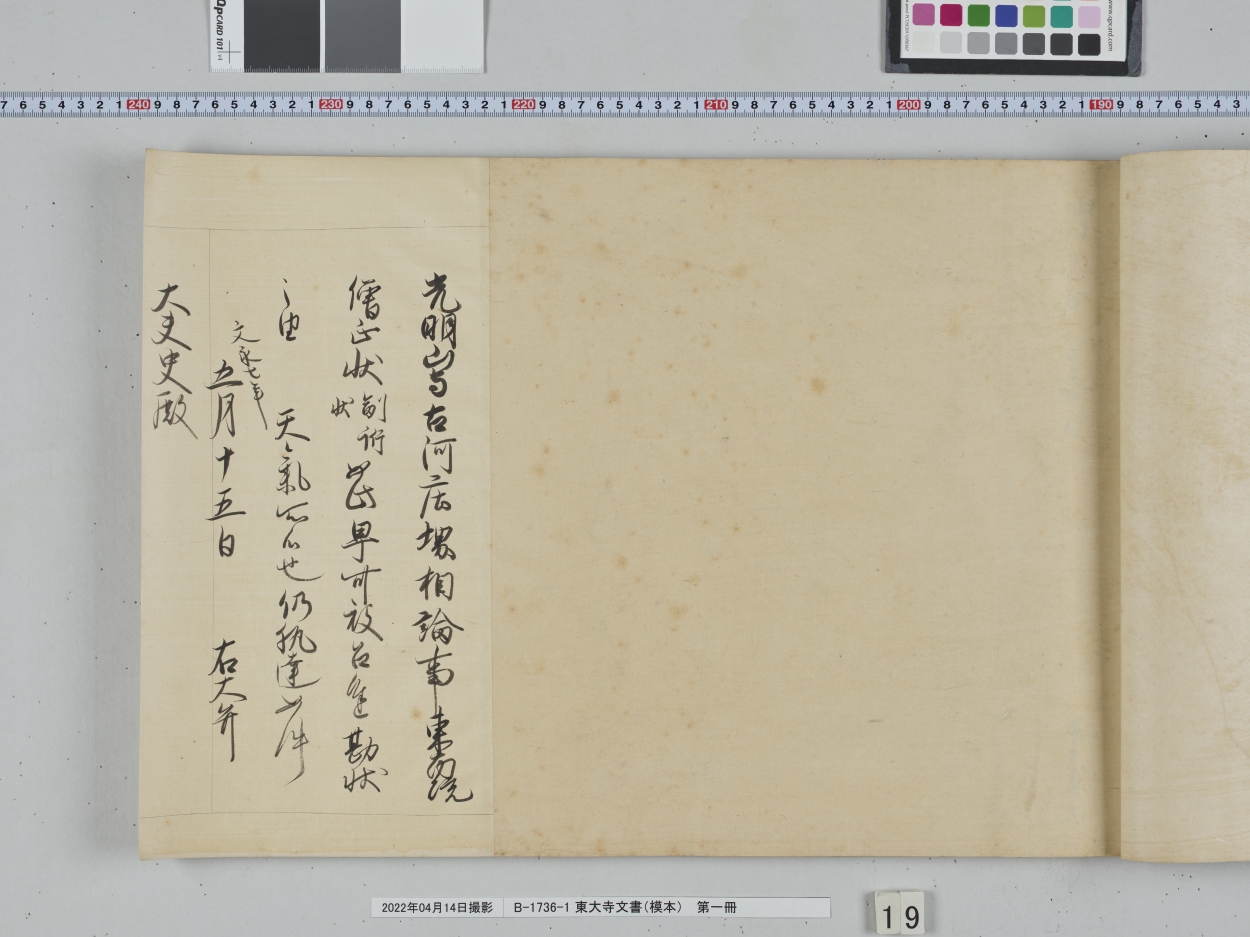 光明山与古河庄堺相論事東南院
僧正状副訴状如此早可被召進勘状
之由天氣所候也仍執達如件
文永七年
五月十五日 右大弁
大夫史殿
2022年04月14日撮影 B-1736-1 東大寺文書(模本) 第一冊
19
QPCARD 101 v4
7 6 5 4 3 2 1 240 9 8 7 6 5 4 3 2 1 230 9 8 7 6 5 4 3 2 1 220 9 8 7 6 5 4 3 2 1 210 9 8 7 6 5 4 3 2 1 200 9 8 7 6 5 4 3 2 1 190 9 8 7 6 5 4 3
www.qpcard.com